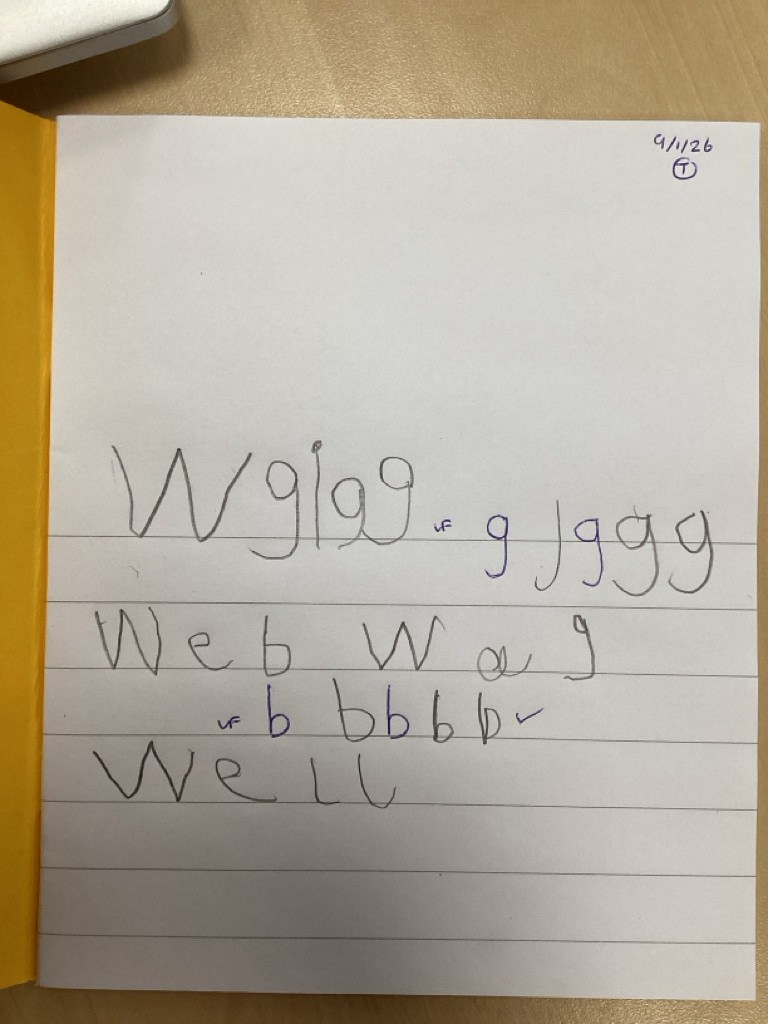 9/1/26
T
Wgigg VF g jggg g
Web Wag
VF b b b b b ✓
Well